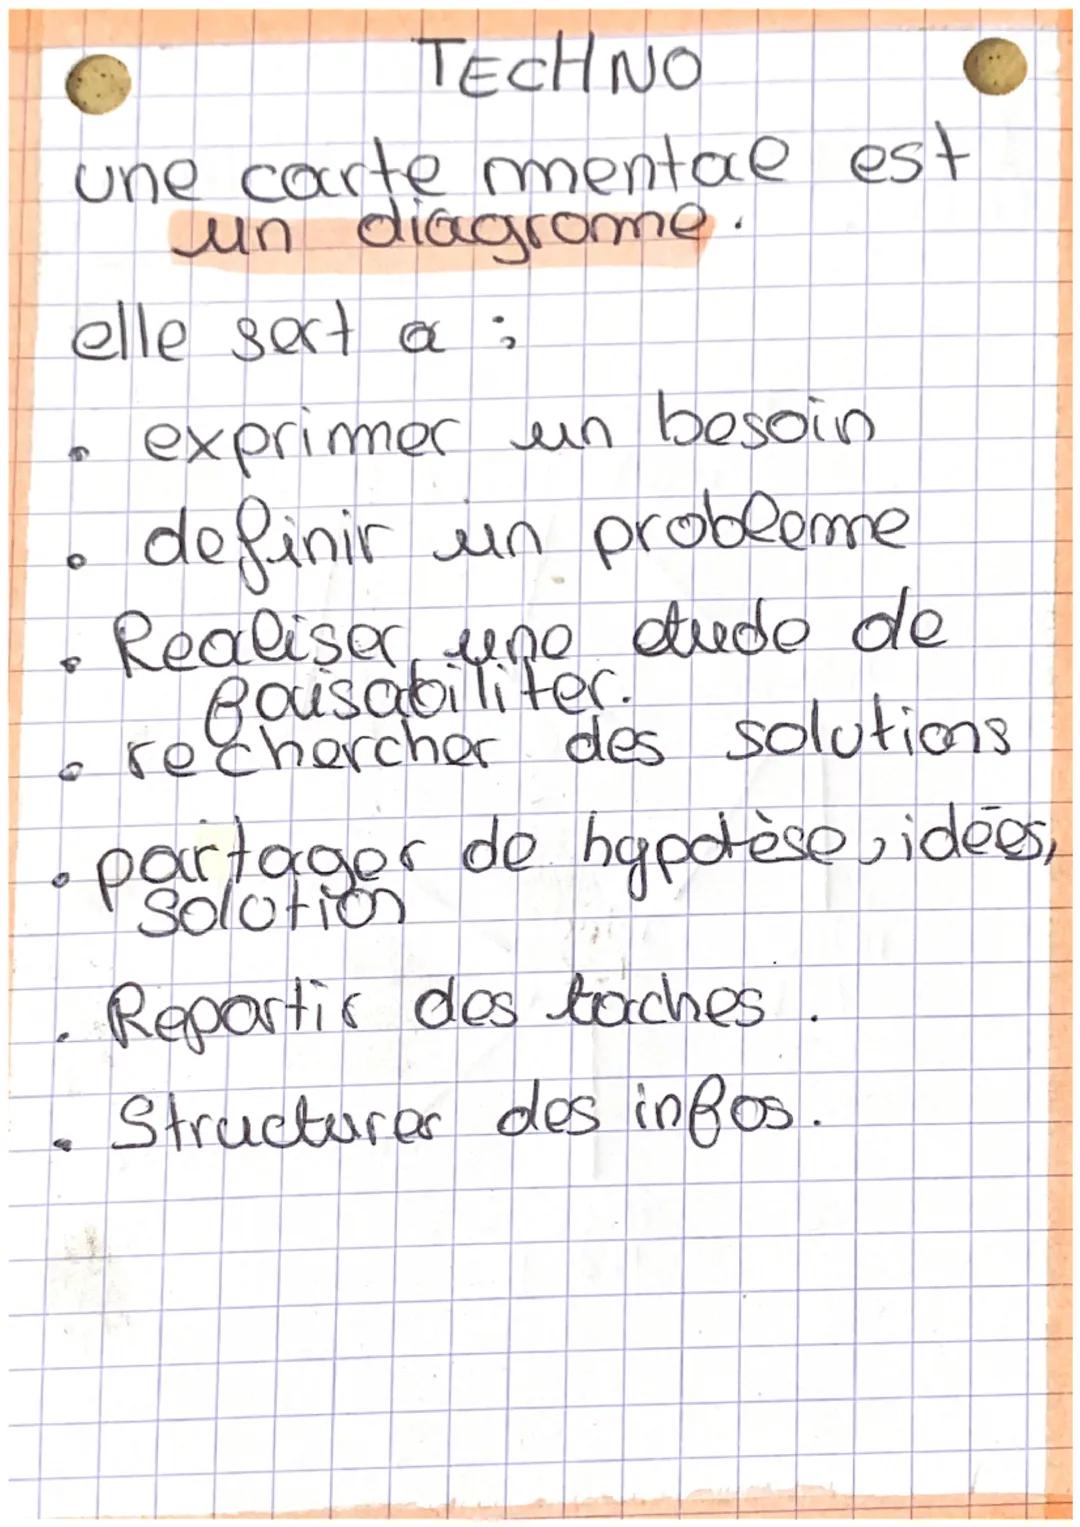 TECHNO
une carte mentale est
un diagramme.
elle sert a :
• exprimer un besoin
• definir un probleme
• Realiser une étude de
faisabiliter.
• rechercher des solutions
• partager de hypotèse, idées,
solution
• Repartir des taches.
• Structurer des infos.